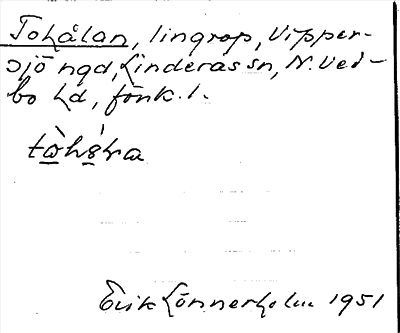 Tohålan, lingrop, Vipper-
sjö ngd, Linderås sn, N. Ved-
bo hd, Jönk. l.
Erik Lönnerholm 1951